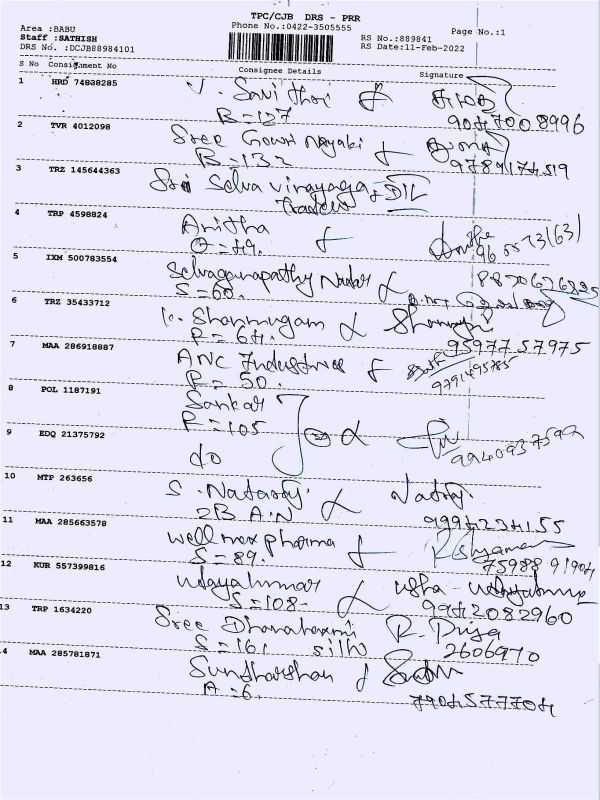 TPC/CJB DRS - PRR
Phone No.:0422-3505555
Page No.:1
Area :BABU
Staff :SATHISH
DRS No. :DCJB88984101
RS No.:889841
RS Date:11-Feb-2022
S No Consignment No Consignee Details Signature
1 HRD 74838285 V. Savithri
B=127 9047008996
2 TVR 4012098 Sree Gowri Nayaki
B=132 9789174519
3 TRZ 145644363 Sri Selva Vinayaga
Traders
4 TRP 4598824 Anitha
5 IXM 500783554 Selvaganapathy Nadar
S=60.
6 TRZ 35433712 K. Shanmugam
P=64. 95977 57975
7 MAA 286918887 ANC Industries
P=50. 9791495785
8 POL 1187191 Sankar
P=105
9 EDQ 21375792 do 9940937592
10 MTP 263656 S. Nataraj
2B A.N 9994224155
11 MAA 285663578 Wellmax pharma
S=89. 75988 91904
12 KUR 557399816 Udayakumar Usha
S=108 9942082960
13 TRP 1634220 Sree Dhanalaxmi R. Priya
S=161 silks 2606970
14 MAA 285781871 Sundharshan
A=6. 7904577704